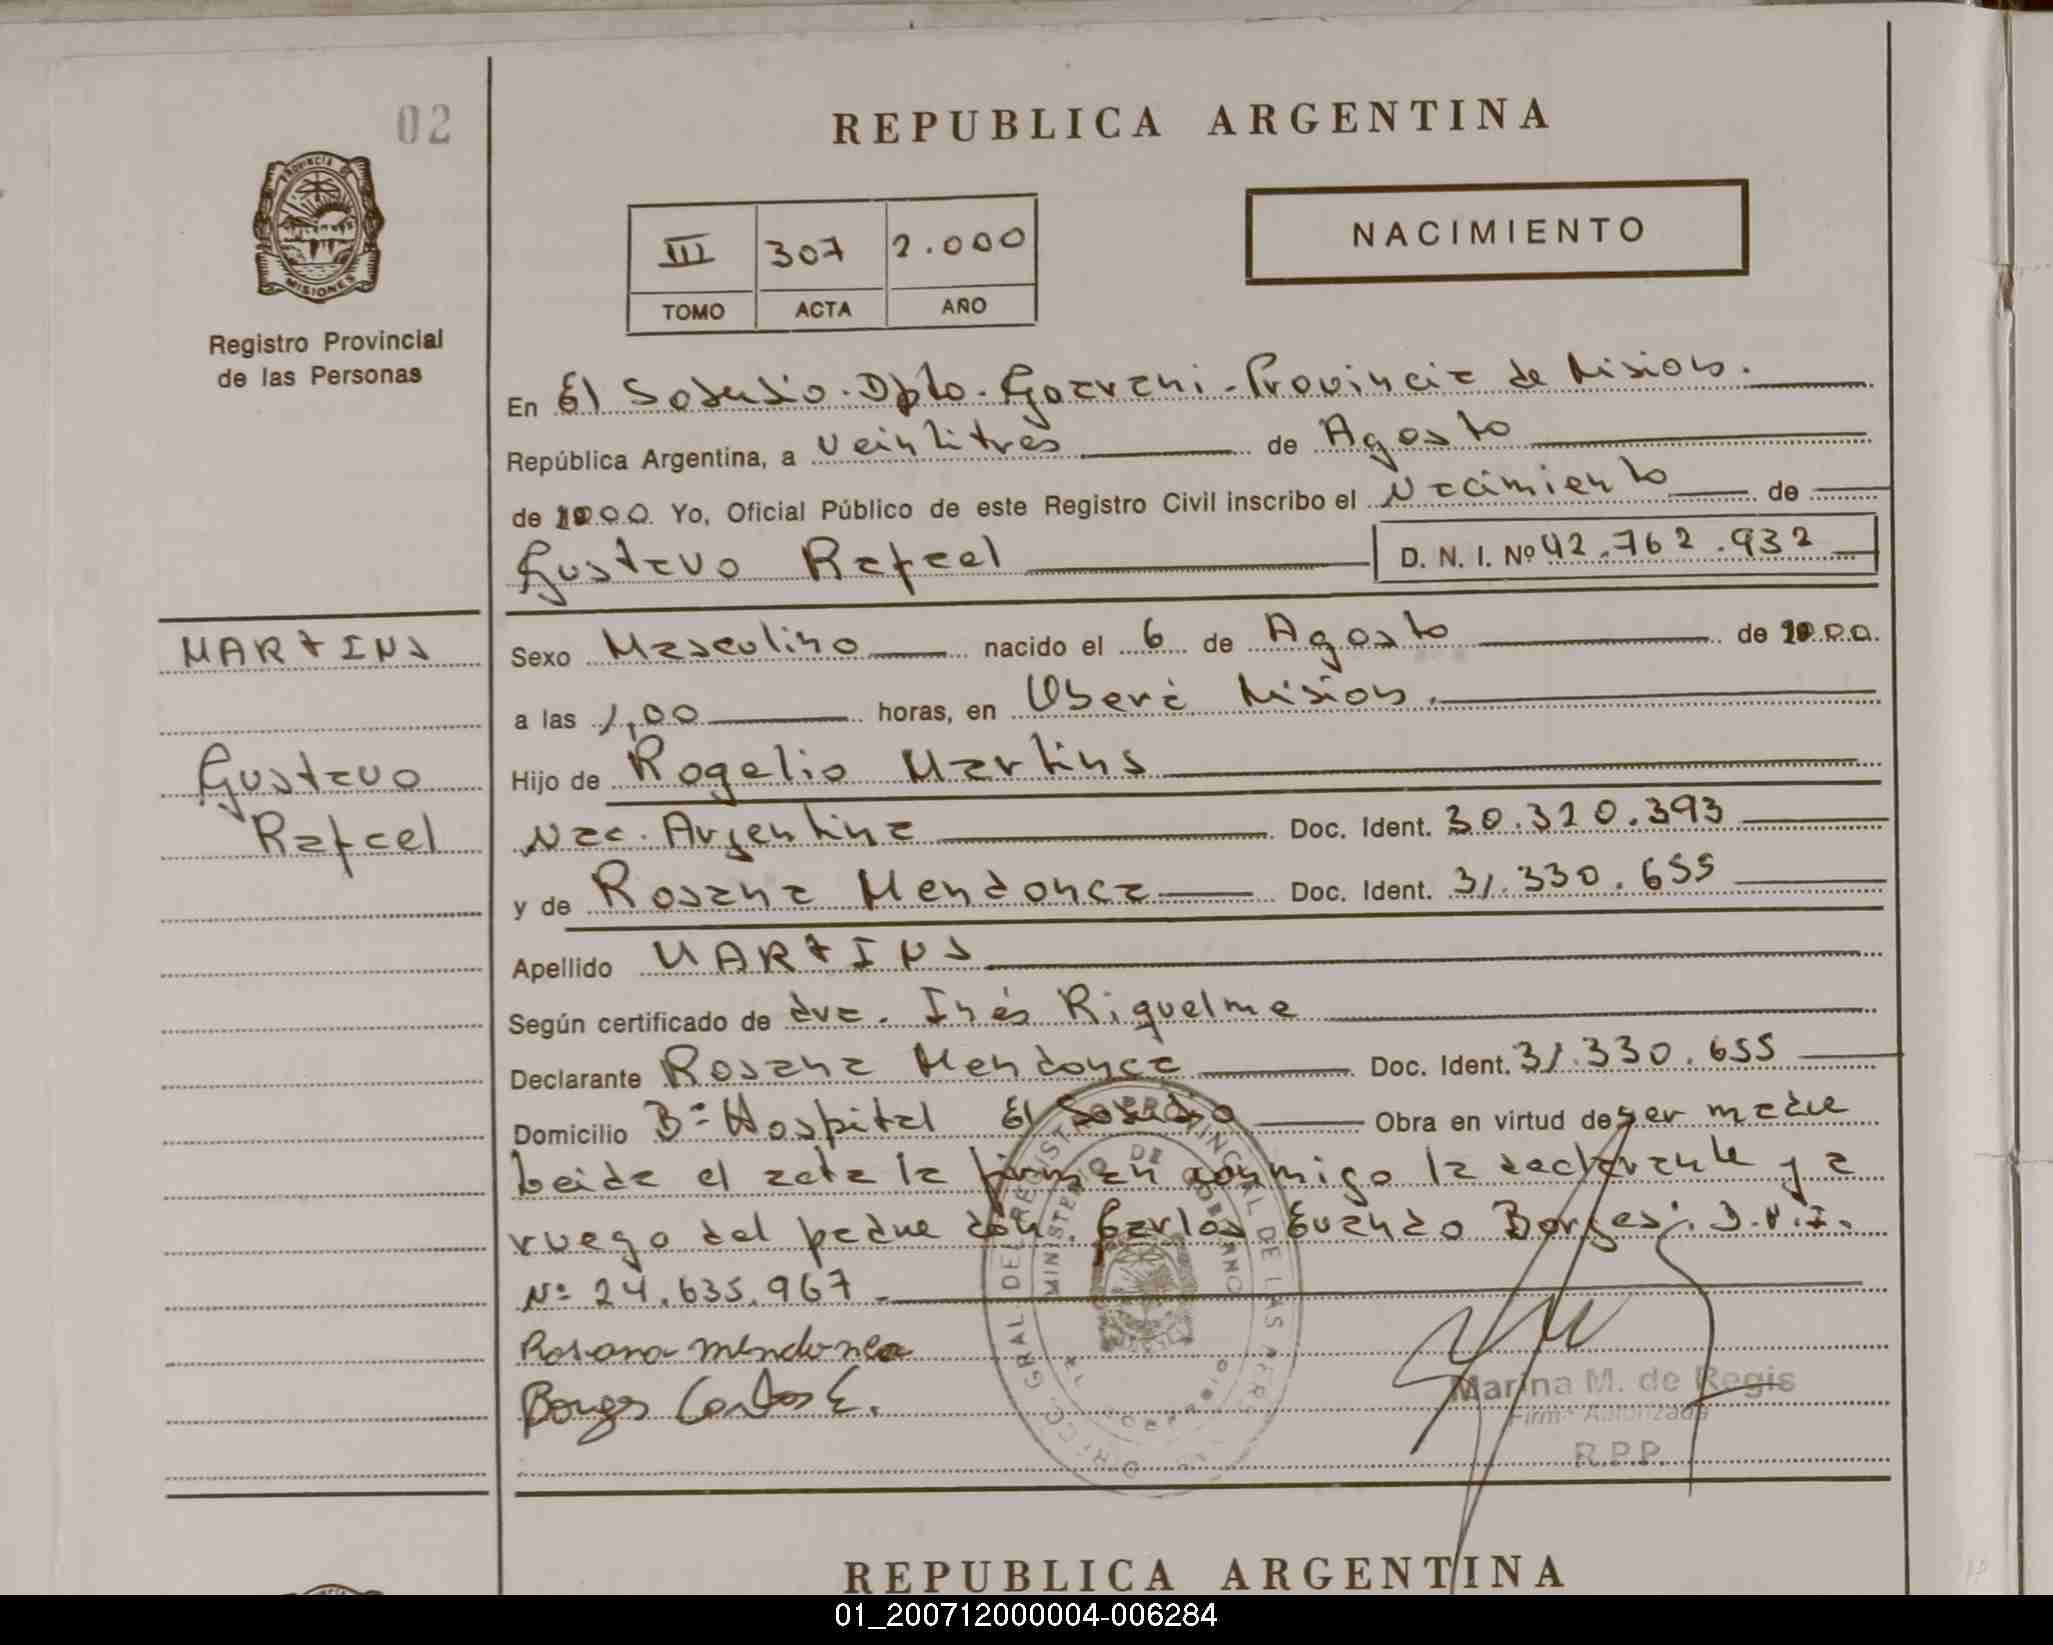 02
REPUBLICA ARGENTINA
PROVINCIA DE
MISIONES
Registro Provincial
de las Personas
III 307 2.000
TOMO ACTA AÑO
NACIMIENTO
En El Soberbio. Dpto. Guarani. Provincia de Misiones.
República Argentina, a veintitres de Agosto
de 2000 Yo, Oficial Público de este Registro Civil inscribo el Nacimiento de
Gustavo Rafael D. N. I. Nº 42.762.932
MARTINS
Sexo Masculino nacido el 6 de Agosto de 2000
a las 1,00 horas, en Oberá Misiones.
Gustavo
Hijo de Rogelio Martins
Rafael
Nac. Argentina Doc. Ident. 30.320.393
y de Rosana Mendonca Doc. Ident. 31.330.655
Apellido MARTINS
Según certificado de dra. Inés Riquelme
Declarante Rosana Mendonca Doc. Ident. 31.330.655
Domicilio Bº Hospital El Soberbio Obra en virtud de ser madre
Leida el acta la firman conmigo la declarante y a
ruego del padre don. Carlos Eurndo Borges. D.N.I.
Nº 24.635.967
Rosana mendonca
Borges Carlos E.
Marina M. de Regis
Firma Autorizada
R.P.P.
REPUBLICA ARGENTINA
01_200712000004-006284